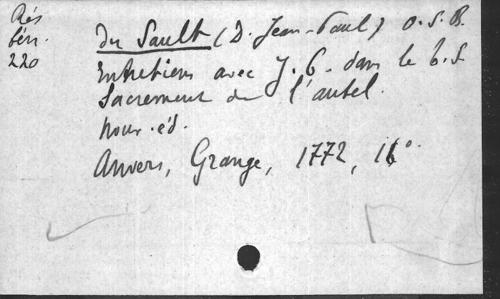 Rés
bén.
220
Du Sault (D. Jean-Paul) O.S.B.
Entretiens avec J.C. dans le t.S.
Sacrement de l'autel.
nouv. éd.
Anvers, Grange, 1772, 16°.